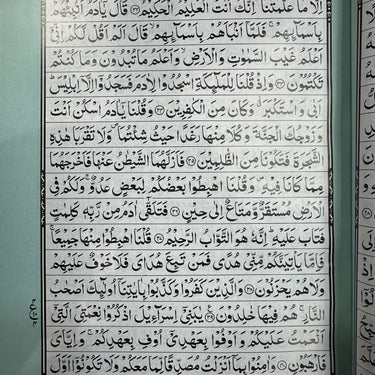 اِلَّا مَا عَلَّمْتَنَا ؕ اِنَّكَ اَنْتَ الْعَلِيْمُ الْحَكِيْمُ ﴿۳۲﴾ قَالَ يٰۤاٰدَمُ اَنْۢبِئْهُمْ
بِاَسْمَآئِهِمْ ۚ فَلَمَّاۤ اَنْۢبَاَهُمْ بِاَسْمَآئِهِمْ ۙ قَالَ اَلَمْ اَقُلْ لَّكُمْ اِنِّيْۤ
اَعْلَمُ غَيْبَ السَّمٰوٰتِ وَالْاَرْضِ ۙ وَاَعْلَمُ مَا تُبْدُوْنَ وَمَا كُنْتُمْ
تَكْتُمُوْنَ ﴿۳۳﴾ وَاِذْ قُلْنَا لِلْمَلٰٓئِكَةِ اسْجُدُوْا لِاٰدَمَ فَسَجَدُوْۤا اِلَّاۤ اِبْلِيْسَ ؕ
اَبٰى وَاسْتَكْبَرَ ٭ۗ وَكَانَ مِنَ الْكٰفِرِيْنَ ﴿۳۴﴾ وَقُلْنَا يٰۤاٰدَمُ اسْكُنْ اَنْتَ
وَزَوْجُكَ الْجَنَّةَ وَكُلَا مِنْهَا رَغَدًا حَيْثُ شِئْتُمَا ۪ وَلَا تَقْرَبَا هٰذِهِ
الشَّجَرَةَ فَتَكُوْنَا مِنَ الظّٰلِمِيْنَ ﴿۳۵﴾ فَاَزَلَّهُمَا الشَّيْطٰنُ عَنْهَا فَاَخْرَجَهُمَا
مِمَّا كَانَا فِيْهِ ۪ وَقُلْنَا اهْبِطُوْا بَعْضُكُمْ لِبَعْضٍ عَدُوٌّ ۚ وَلَكُمْ فِى
الْاَرْضِ مُسْتَقَرٌّ وَّمَتَاعٌ اِلٰى حِيْنٍ ﴿۳۶﴾ فَتَلَقّٰۤى اٰدَمُ مِنْ رَّبِّهٖ كَلِمٰتٍ
فَتَابَ عَلَيْهِ ؕ اِنَّهٗ هُوَ التَّوَّابُ الرَّحِيْمُ ﴿۳۷﴾ قُلْنَا اهْبِطُوْا مِنْهَا جَمِيْعًا ۚ
فَاِمَّا يَاْتِيَنَّكُمْ مِّنِّيْ هُدًى فَمَنْ تَبِعَ هُدَايَ فَلَا خَوْفٌ عَلَيْهِمْ
وَلَا هُمْ يَحْزَنُوْنَ ﴿۳۸﴾ وَالَّذِيْنَ كَفَرُوْا وَكَذَّبُوْا بِاٰيٰتِنَاۤ اُولٰٓئِكَ اَصْحٰبُ
النَّارِ ۚ هُمْ فِيْهَا خٰلِدُوْنَ ﴿۳۹﴾ يٰبَنِيْۤ اِسْرَآءِيْلَ اذْكُرُوْا نِعْمَتِيَ الَّتِيْۤ
اَنْعَمْتُ عَلَيْكُمْ وَاَوْفُوْا بِعَهْدِيْۤ اُوْفِ بِعَهْدِكُمْ ۚ وَاِيَّايَ
فَارْهَبُوْنِ ﴿۴۰﴾ وَاٰمِنُوْا بِمَاۤ اَنْزَلْتُ مُصَدِّقًا لِّمَا مَعَكُمْ وَلَا تَكُوْنُوْۤا اَوَّلَ